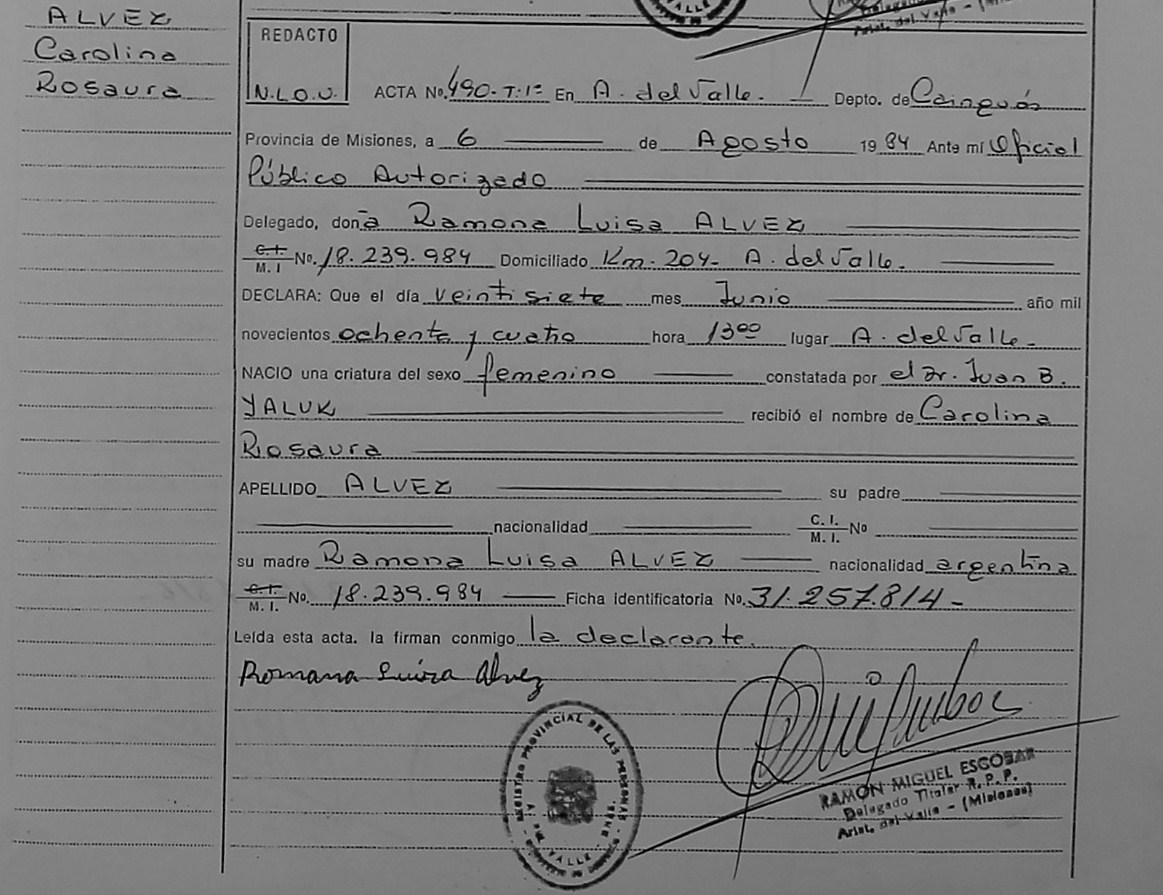 ALVEZ
Carolina
Rosaura
VALLE
REDACTO
N.L.O.U.
ACTA No. 490-T:1º En A. del Valle. Depto. de Cainguás
Provincia de Misiones, a 6 de Agosto 1984 Ante mí Oficial
Público Autorizado
Delegado, doña Ramona Luisa ALVEZ
C.I. M.I No. 18.239.984 Domiciliado Km. 204- A. del Valle.
DECLARA: Que el día veintisiete mes Junio año mil
novecientos ochenta y cuatro hora 13ºº lugar A. del Valle-
NACIO una criatura del sexo femenino constatada por el Dr. Juan B.
YALUK recibió el nombre de Carolina
Rosaura
APELLIDO ALVEZ su padre
nacionalidad C. I. M. I. Nº
su madre Ramona Luisa ALVEZ nacionalidad argentina
C.I. M.I. No. 18.239.984 Ficha identificatoria No. 31.257.814-
Leída esta acta. la firman conmigo la declarante.
Romana Luiza Alvez
REGISTRO PROVINCIAL DE LAS PERSONAS
A. DEL VALLE - MNES.
RAMON MIGUEL ESCOBAR
Delegado Titular R. P. P.
Arist. del Valle - (Misiones)